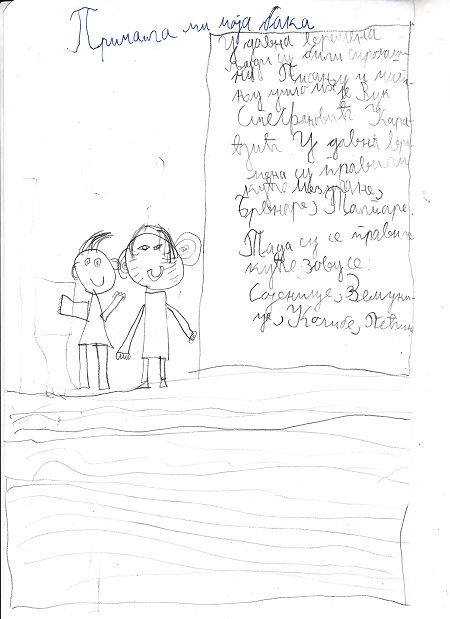 Причала ми моја бака
У давна времена
људи су били сиромаш
ни Писању и чита
њу учио их је Вук
Стефановић Кара
џић У давна вре
мена су правили
куће
Брвнаре, Чатмаре.
Тада су се правиле
куће зову се:
Сојенице, Земуни
це, Колибе,